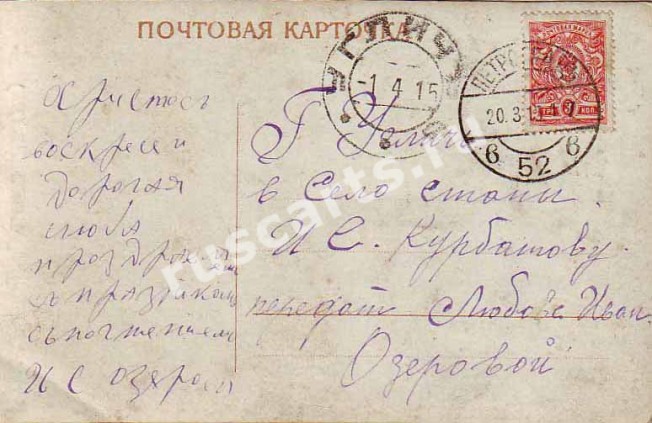 ПОЧТОВАЯ КАРТОЧКА
УГЛИЧЪ
-1.4.15
ПЕТРОГРАДЪ
20.3.15
6 52 6
ТРИ КОП
Христосъ
воскресе и
дорогая
люба
поздрав
съ праздником
съ почтением
И С Озеров
Г Углич
в Село
И С. Курбатову.
передать Любове Иван.
Озеровой
ruscarts.ru